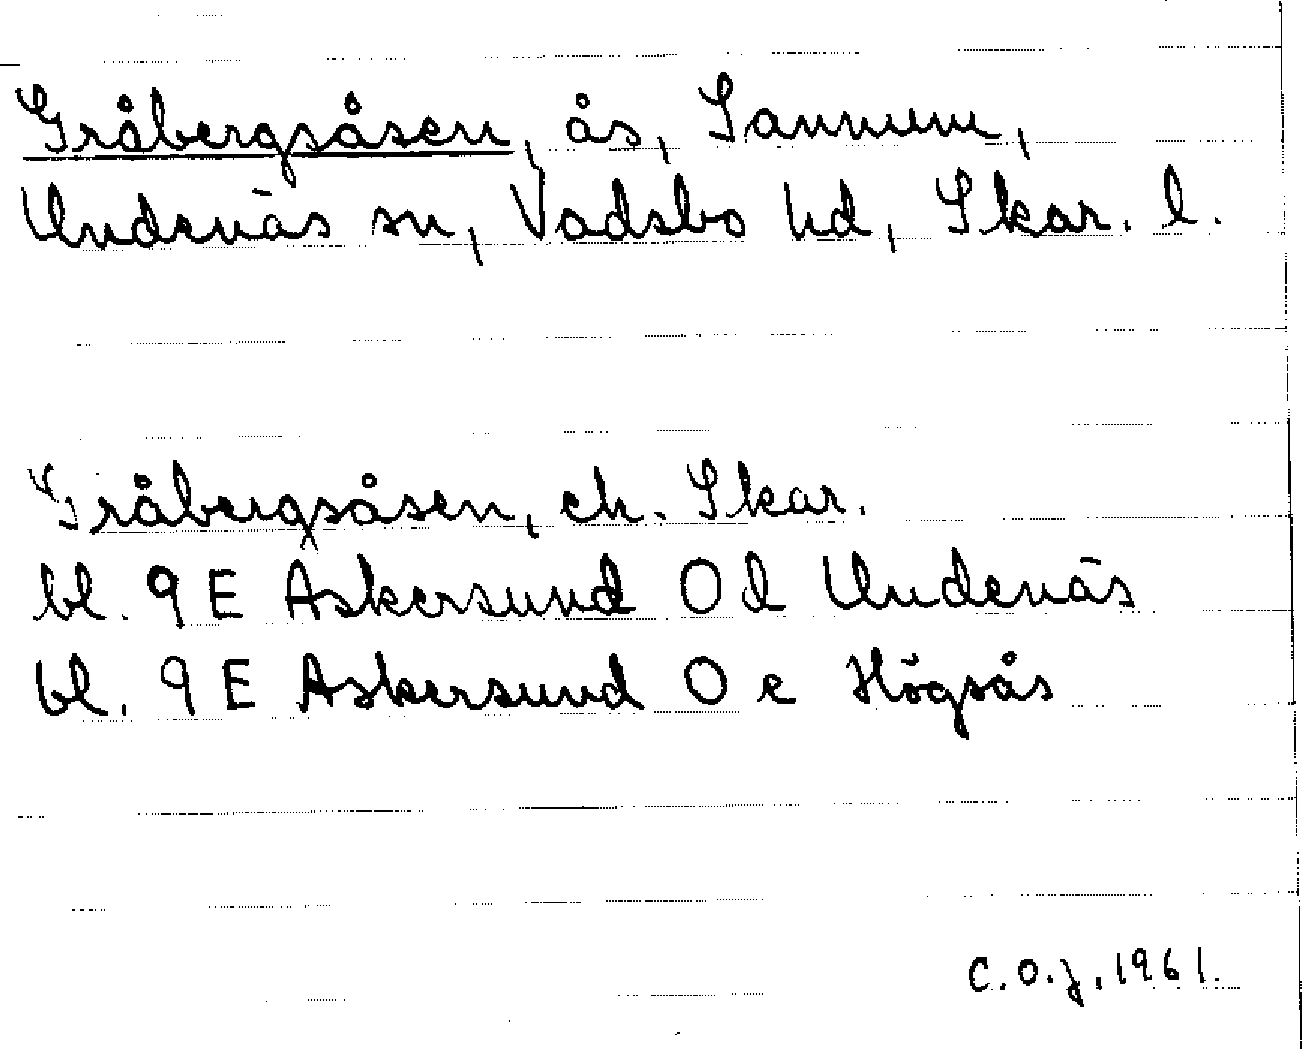 Gråbergsåsen, ås, Sannum,
Undenäs sn, Vadsbo hd, Skar. l.
Gråbergsåsen, ek. Skar.
bl. 9 E Askersund 0 d Undenäs
bl. 9 E Askersund 0 e Högsås
C.O.J. 1961.